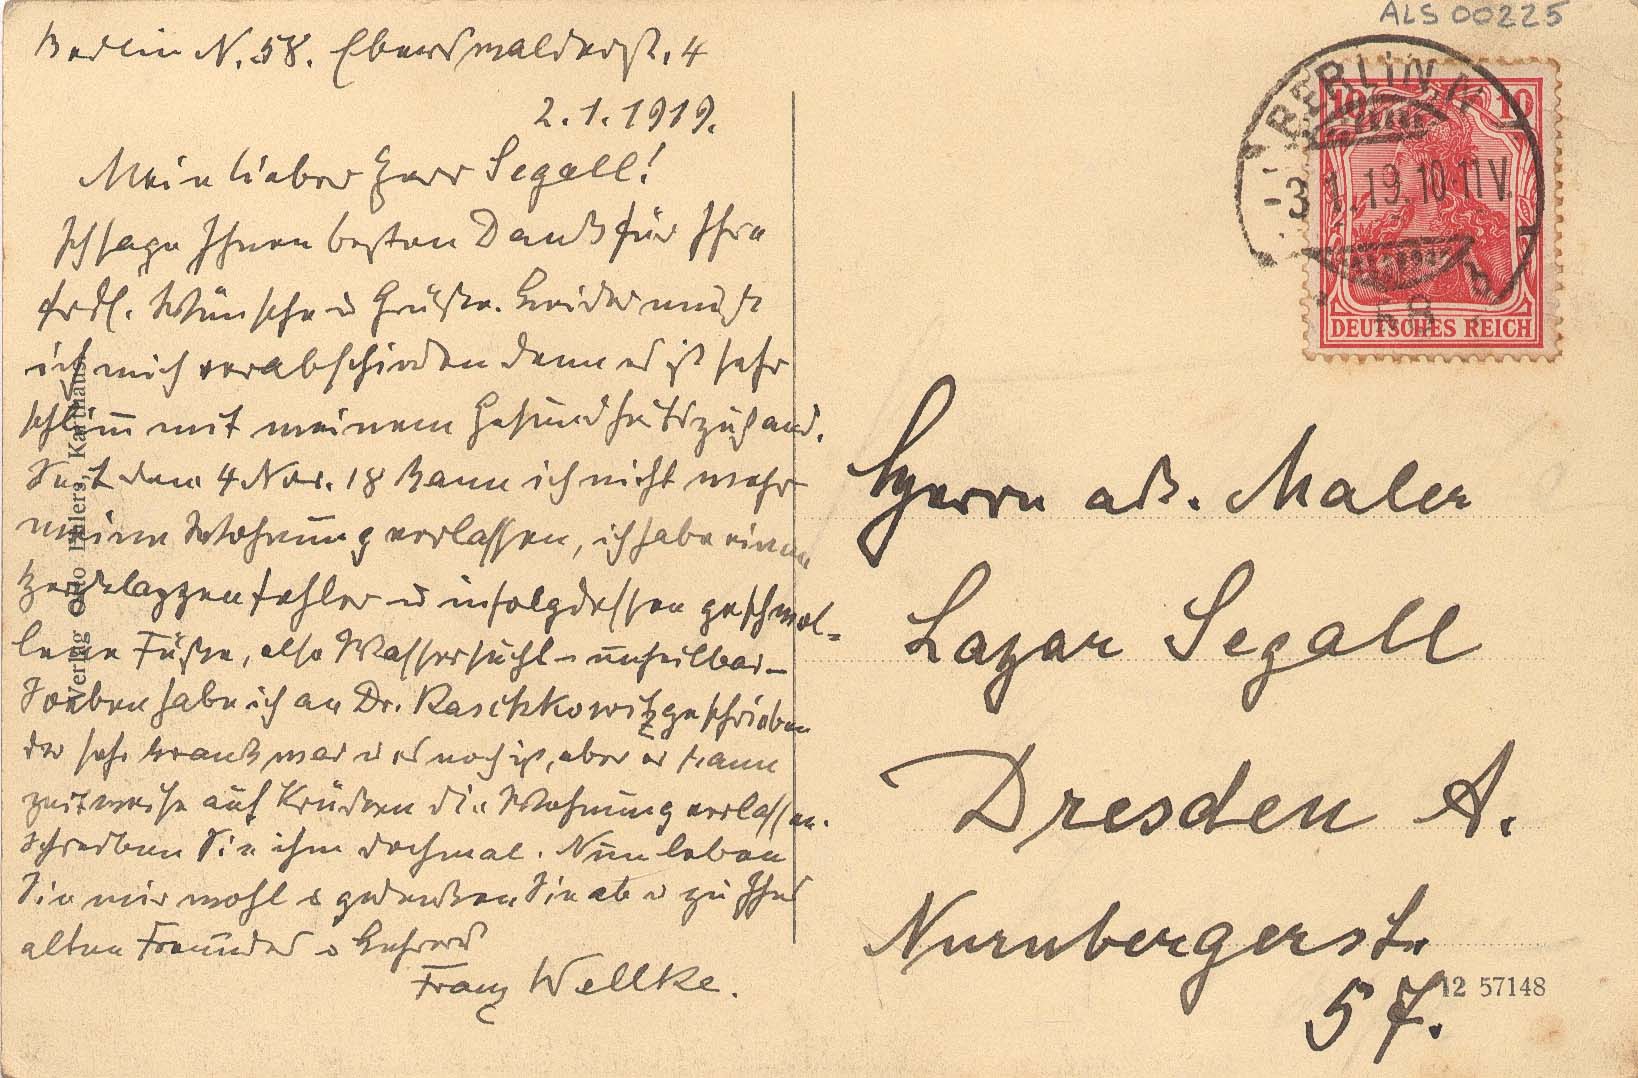 ALS 00225
Berlin N. 58. Eberswalderst. 4
2.1.1919.
Mein lieber Herr Segall!
Ich sage Ihnen besten Dank für Ihre
frdl. Wünsche u Grüße. Leider muß
ich mich verabschieden denn es ist sehr
schlim̄ mit meinem Gesundheitszustand.
Seit dem 4 Nov. 18 kann ich nicht mehr
meine Wohnung verlassen, ich habe einen
Herzklappenfehler u infolgdessen geschwol-
lene Füße, also Wassersucht – unheilbar –
Soeben habe ich an Dr. Raschkowitz geschrieben
der sehr krank war u es noch ist, aber er kann
zeitweise auf Krücken die Wohnung verlassen.
Schreiben Sie ihm doch mal. Nun leben
Sie mir wohl u gedenken Sie ab u zu Ihres
alten Freundes u Lehrers
Franz Wellke.
Verlag Otto Ehlers, Karthaus
BERLIN. N
3 1. 19. 10-11 V.
* 58 b
10 10
DEUTSCHES REICH
Herrn ak. Maler
Lazar Segall
Dresden A.
Nurnbergerst.
57.
12 57148